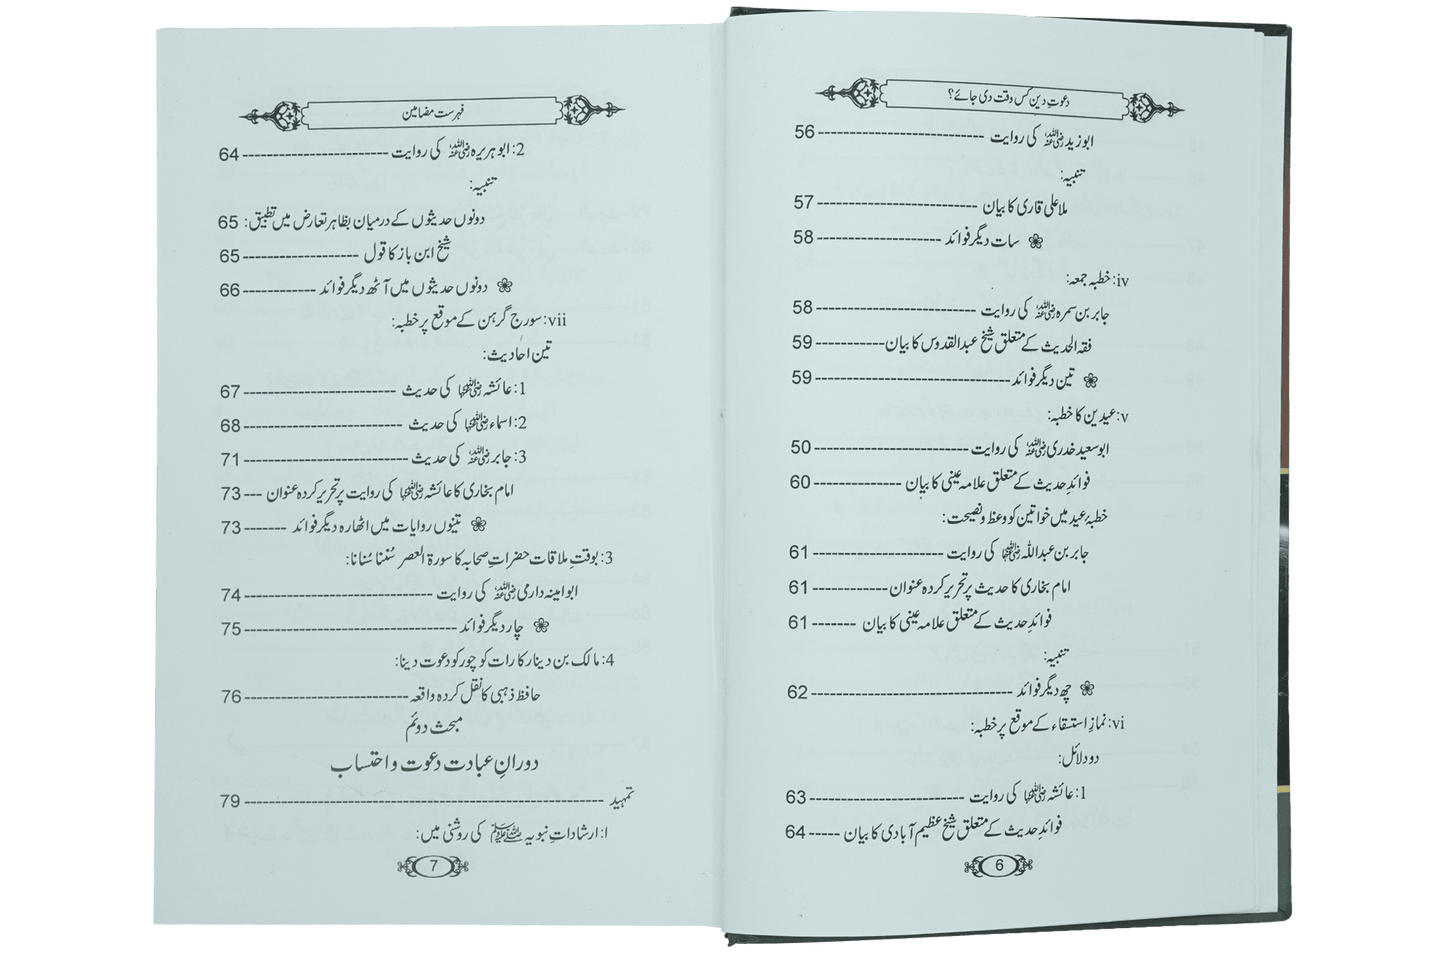 دعوتِ دین کس وقت دی جائے؟
ابو زید رضی اللہ عنہ کی روایت ---------------------------- 56
تنبیہ:
ملا علی قاری کا بیان ---------------------------- 57
❀ سات دیگر فوائد --------------------- 58
iv: خطبہ جمعہ:
جابر بن سمرہ رضی اللہ عنہ کی روایت --------------------- 58
فقہ الحدیث کے متعلق شیخ عبد القدوس کا بیان ----------- 59
❀ تین دیگر فوائد -------------------------------- 59
v: عیدین کا خطبہ:
ابو سعید خدری رضی اللہ عنہ کی روایت ------------------------- 50
فوائدِ حدیث کے متعلق علامہ عینی کا بیان -------------- 60
خطبۂ عید میں خواتین کو وعظ و نصیحت:
جابر بن عبد اللہ رضی اللہ عنہما کی روایت --------------------- 61
امام بخاری کا حدیث پر تحریر کردہ عنوان ------------ 61
فوائدِ حدیث کے متعلق علامہ عینی کا بیان ------- 61
تنبیہ:
❀ چھ دیگر فوائد --------------------------------- 62
vi: نمازِ استسقاء کے موقع پر خطبہ:
دو دلائل:
1: عائشہ رضی اللہ عنہا کی روایت ------------------------- 63
فوائدِ حدیث کے متعلق شیخ عظیم آبادی کا بیان ----- 64
6
فہرست مضامین
2: ابو ہریرہ رضی اللہ عنہ کی روایت ------------------------ 64
تنبیہ:
دونوں حدیثوں کے درمیان بظاہر تعارض میں تطبیق: 65
شیخ ابن باز کا قول ------------------- 65
❀ دونوں حدیثوں میں آٹھ دیگر فوائد ------------ 66
vii: سورج گرہن کے موقع پر خطبہ:
تین احادیث:
1: عائشہ رضی اللہ عنہا کی حدیث ------------------------- 67
2: اسماء رضی اللہ عنہا کی حدیث -------------------------- 68
3: جابر رضی اللہ عنہ کی حدیث --------------------------- 71
امام بخاری کا عائشہ رضی اللہ عنہا کی روایت پر تحریر کردہ عنوان --- 73
❀ تینوں روایات میں اٹھارہ دیگر فوائد ------- 73
3: بوقتِ ملاقات حضراتِ صحابہ کا سورۃ العصر سُننا سُنانا:
ابو امینہ دارمی رضی اللہ عنہ کی روایت ------------------------------- 74
❀ چار دیگر فوائد ----------------------------------- 75
4: مالک بن دینار کا رات کو چور کو دعوت دینا:
حافظ ذہبی کا نقل کردہ واقعہ --------------------------- 76
مبحث دوئم
دورانِ عبادت دعوت و احتساب
تمہید ------------------------------------------------------------ 79
ا: ارشاداتِ نبویہ ﷺ کی روشنی میں:
7